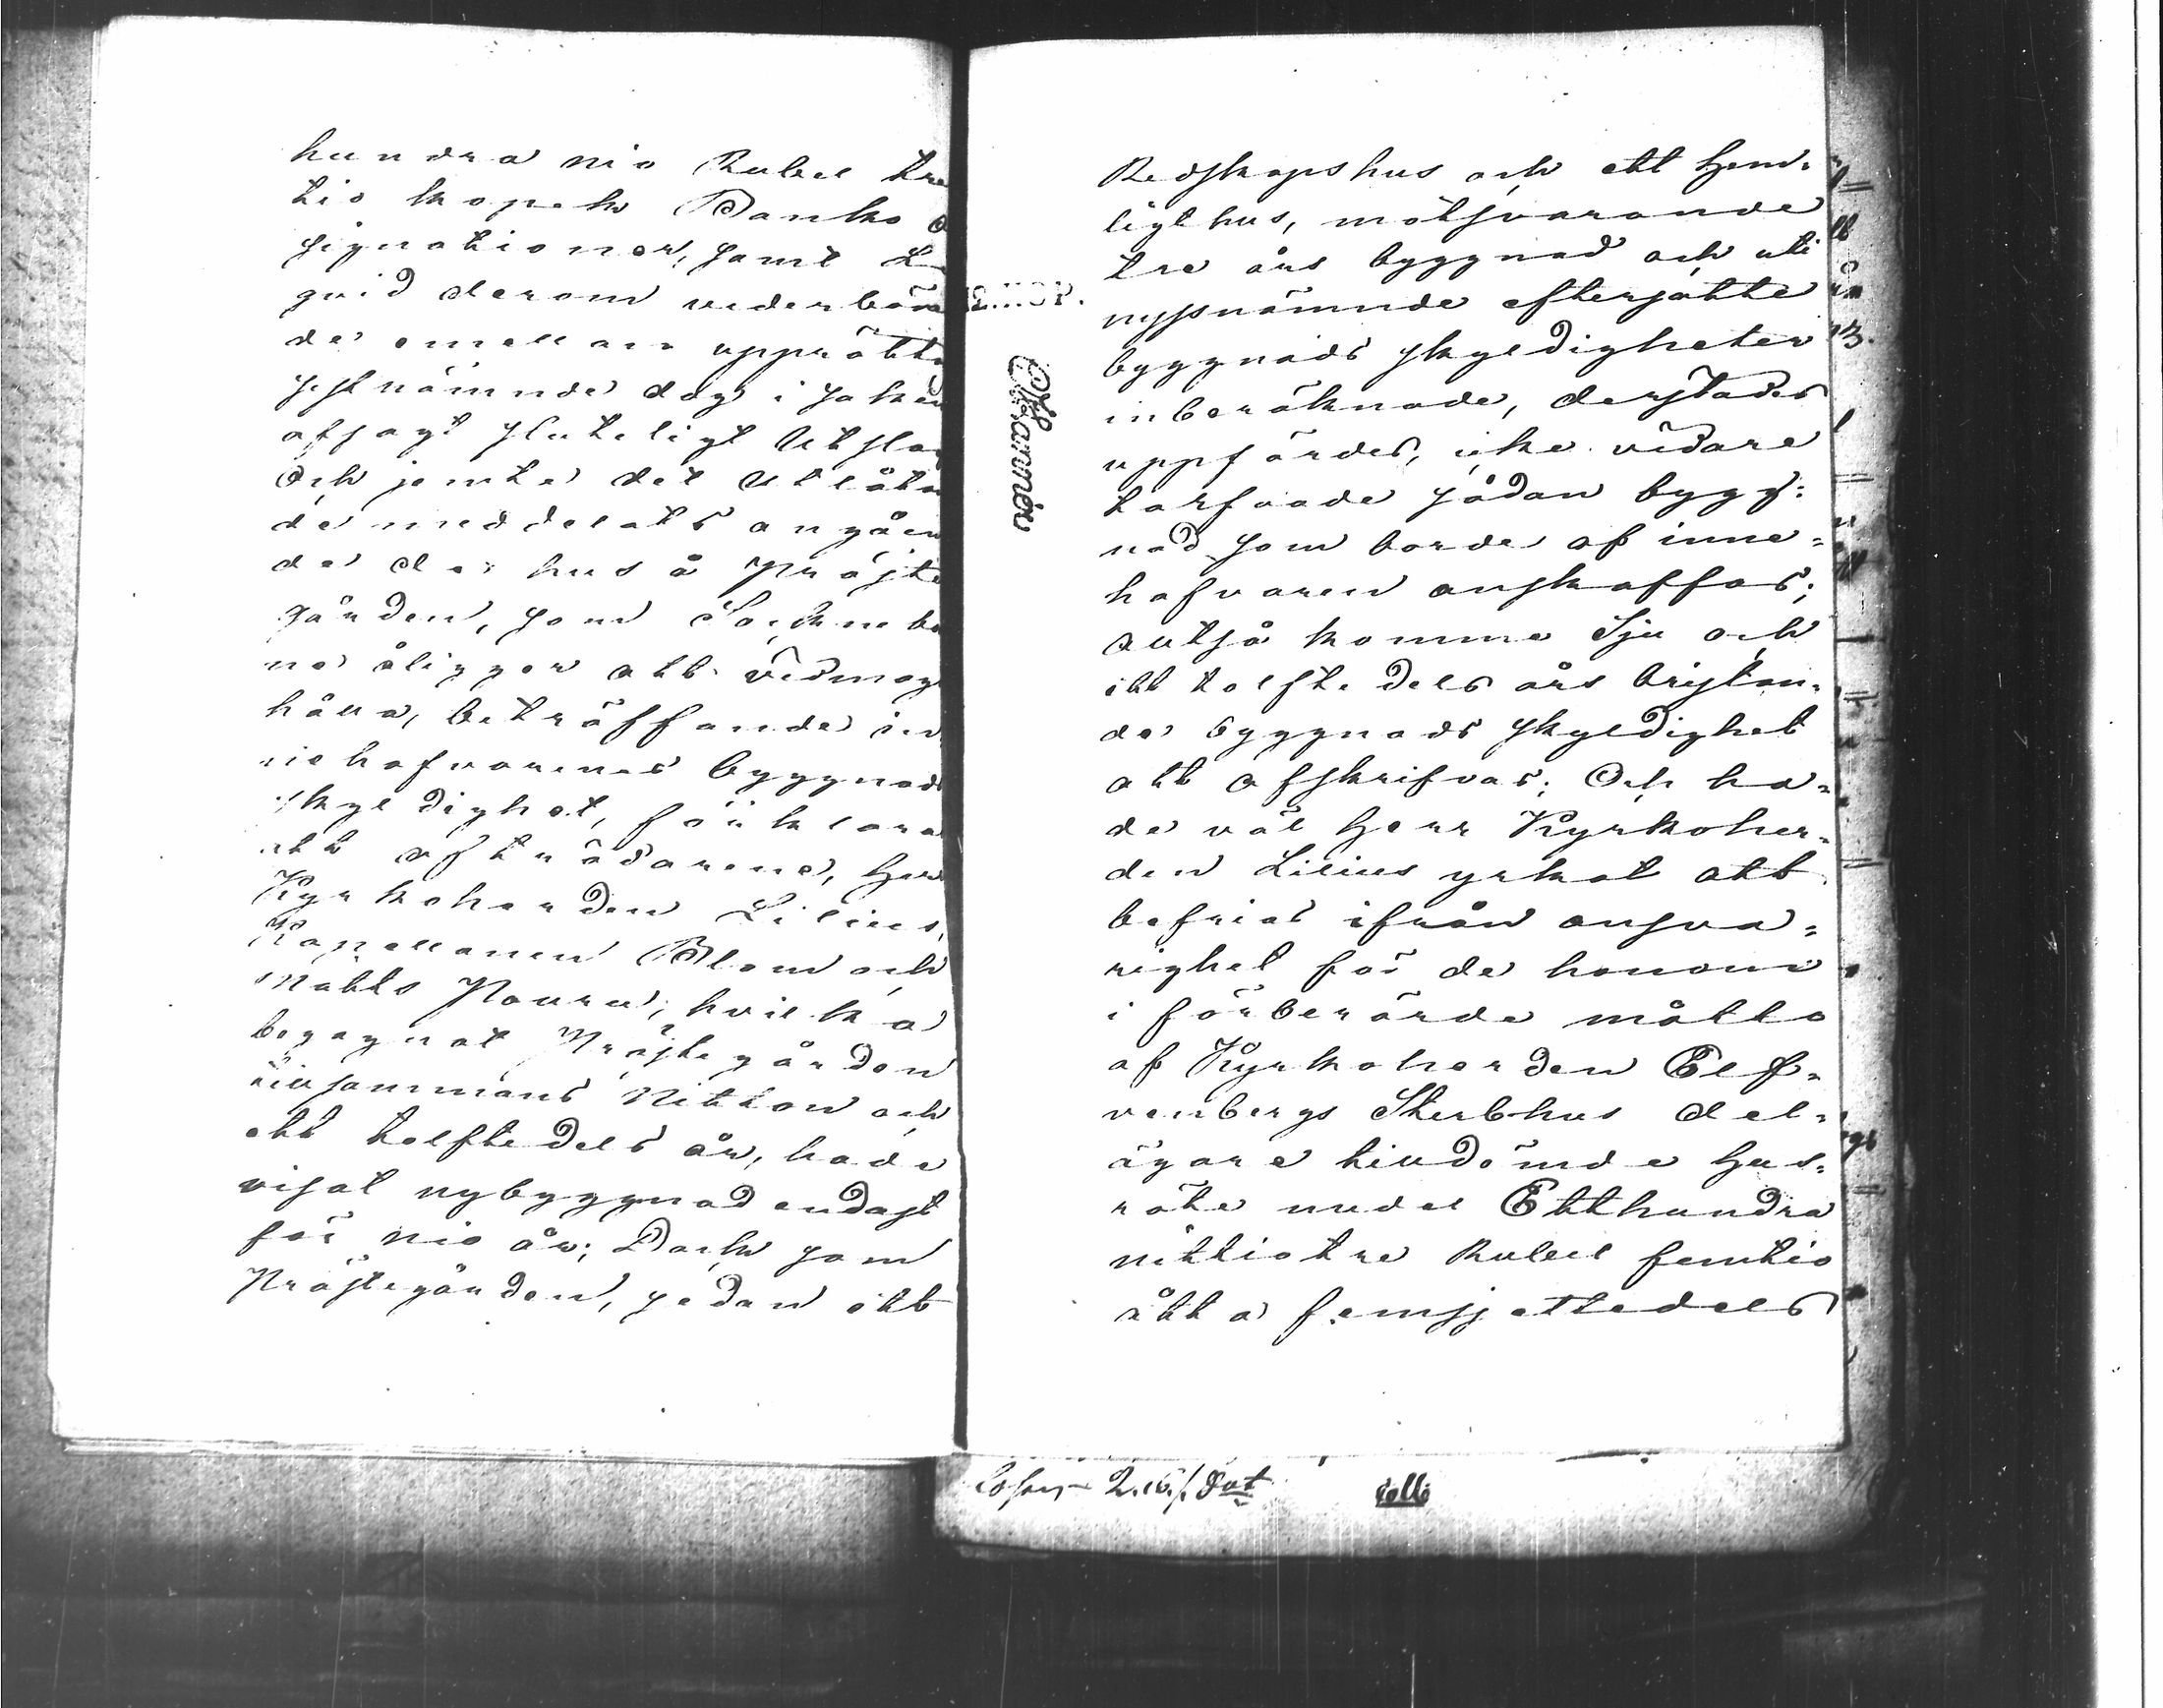 hundra nio Rubel tre
tio kopek Banko a
signationer, samt L
quid derom vederböra
de emellan upprätta
sistnämnde dag i saken
afsagt sluteligt Utslag
Och jemte det Utlåtan
de meddelats angåen
de de hus å Präste
gården, som Sockne bo
ne åligger att vidmagt
hålla, beträffande in
nehafvarenes byggnads
skyldighet, förklarat
att afträdarene, Herr
Kyrkoherden Lilius,
Kapellanen Blom och
Matts Pouru, hvilka
begagnat Prästegården
tillsammans Nitton och
ett tolftedels år, hade
visat nybyggnad endast
för nio år; Dock som
Prästegården, sedan ett
Redskapshus och ett Hem-
ligthus, motsvarande
tre års byggnad och uti
nyssnämnde eftersatte
byggnads skyldigheter
inberäknade, derstädes
uppfördes, icke vidare
tarfvade sådan bygg-
nad som borde af inne-
hafvaren anskaffas;
altså komme Sju och
ett tolftedels års bristan-
de byggnads skyldighet
att afskrifvas; Och ha-
de väl Herr Kyrkoher-
den Lilius yrkat att
befrias ifrån ansva-
righet för de honom
i förberörde måtto
af Kyrkoherden Elf-
venbergs Sterbhus del-
ägare tilldömde Hus-
röte medel Etthundra
nittiotre Rubel femtio
åtta femsjettedels
Skarmén
Coll